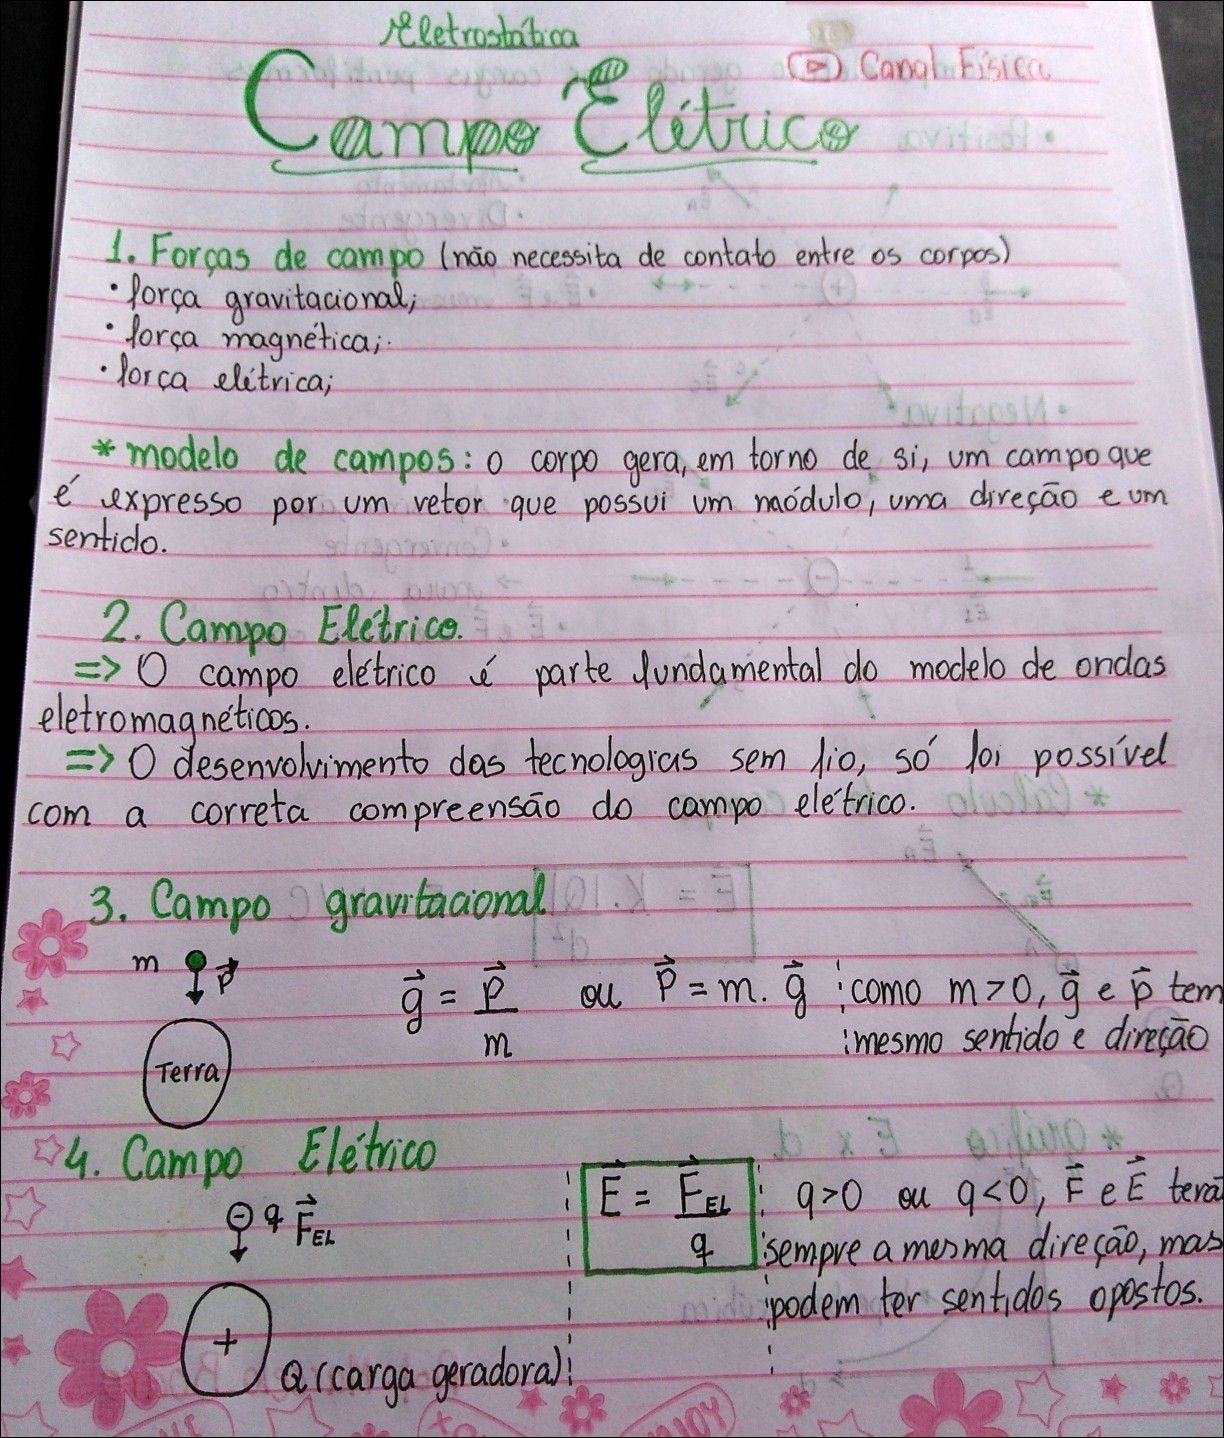 Eletrostática
Canal Física
Campo Elétrico
1. Forças de campo (não necessita de contato entre os corpos)
• força gravitacional;
• força magnética;
• força elétrica;
* modelo de campos: o corpo gera, em torno de si, um campo que
é expresso por um vetor que possui um módulo, uma direção e um
sentido.
2. Campo Elétrico.
=> O campo elétrico é parte fundamental do modelo de ondas
eletromagnéticos.
=> O desenvolvimento das tecnologias sem fio, só foi possível
com a correta compreensão do campo elétrico.
3. Campo gravitacional
m p⃗
Terra
g⃗ = p⃗ / m ou P⃗ = m. g⃗ como m>0, g⃗ e p⃗ tem
mesmo sentido e direção
4. Campo Elétrico
⊖ q F⃗EL
+
Q (carga geradora)
E⃗ = F⃗EL / q
q>0 ou q<0, F⃗ e E⃗ terá
sempre a mesma direção, mas
podem ter sentidos opostos.